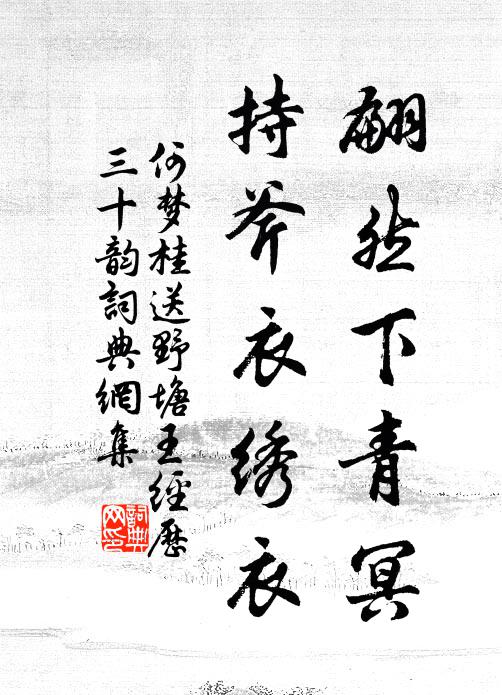 翩然下青冥
持斧衣绣衣
何梦桂送野塘王经历
三十韵词典网集
詞典网印